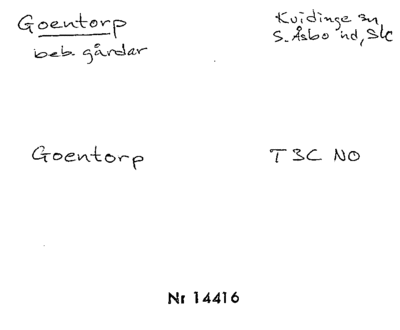 Goentorp
Kvidinge sn
beb. gårdar
S. Åsbo hd, Skåne
Goentorp
T 3C NO
Nr 14416